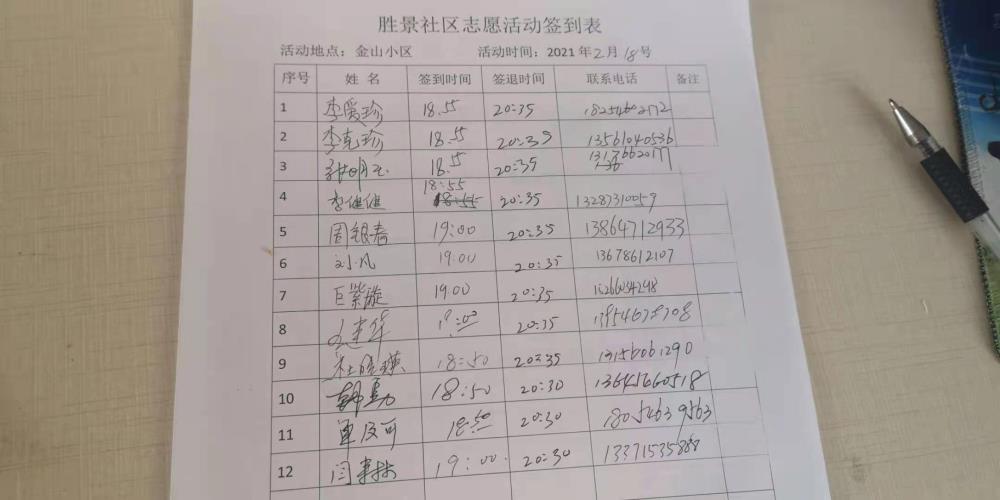 胜景社区志愿活动签到表
活动地点：金山小区 活动时间：2021年2月18号
序号 姓名 签到时间 签退时间 联系电话 备注
1 李爱珍 18.55 20:35 18254602172
2 李克珍 18.55 20:39 13561040536
3 18.55 20:35
4 李健健 18:55 20:35 13287310059
5 周银春 19:00 20:35 13864712933
6 刘小凡 19:00 20:35 13678612107
7 巨紫璇 19.00 20:35
8 19:00 20:35
9 杜晓瑛 18:50 20:35 13156061290
10 韩勇 18:50 20:30 13645660518
11 18:50 20:30 18054639563
12 闫 19:00 20:30 13371535888